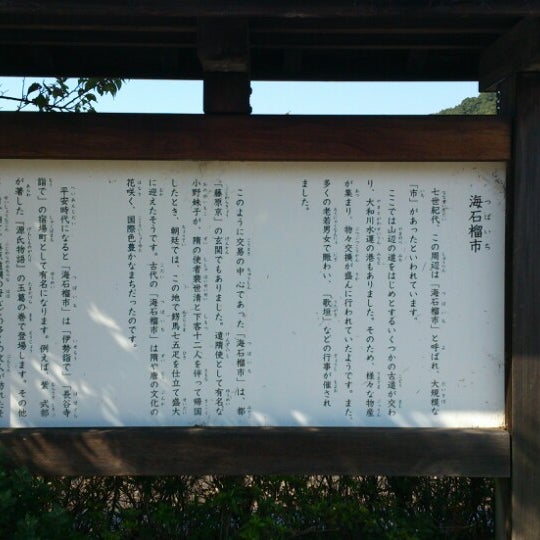 海石榴市
つばいち
七世紀代、この周辺は「海石榴市」と呼ばれ、大規模な
「市」があったといわれています。
ここは山辺の道をはじめとするいくつかの古道が交わ
り、大和川水運の港もありました。そのため、様々な物産
が集まり、物々交換が盛んに行われていたようです。また、
多くの老若男女で賑わい、「歌垣」などの行事が催され
ました。
このように交易の中心であった「海石榴市」は、都
「藤原京」の玄関でもありました。遣隋使として有名な
小野妹子が、隋の使者裴世清と下客十二人を伴って帰国
したとき、朝廷では、この地で錺馬七五疋を仕立て盛大
に迎えたそうです。古代の「海石榴市」は隋や唐の文化の
花咲く、国際色豊かなまちだったのです。
平安時代になると「海石榴市」は「伊勢詣で」「長谷寺
詣で」の宿場町として有名になります。例えば、紫式部
が著した『源氏物語』の玉葛の巻で登場します。その他